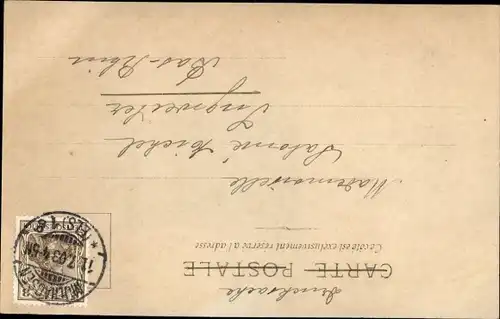 Drucksache
CARTE POSTALE
Ce côté est exclusivement réservé à l'adresse
Mademoiselle
Salomé Michel
Ingweiler
Bas-Rhin
MÜLHAUSEN
(ELS) 1